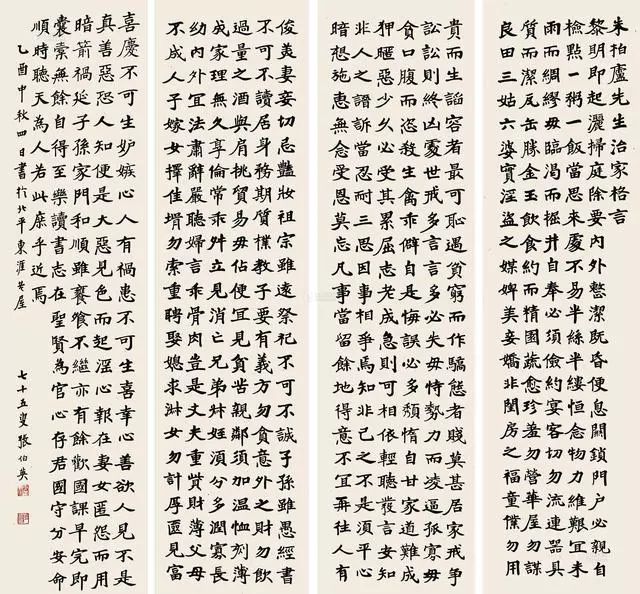 朱柏盧先生治家格言
黎明即起灑掃庭除要內外整潔既昏便息關鎖門戶必親自
檢點一粥一飯當思來處不易半絲半縷恒念物力維艱宜未
雨而綢繆毋臨渴而掘井自奉必須儉約宴客切勿流連器具
質而潔瓦缶勝金玉飲食約而精園蔬愈珍羞勿營華屋勿謀
良田三姑六婆實淫盜之媒婢美妾嬌非閨房之福童僕勿用
俊美妻妾切忌豔妝祖宗雖遠祭祀不可不誠子孫雖愚經書
不可不讀居身務期質樸教子要有義方勿貪意外之財勿飲
過量之酒與肩挑貿易毋佔便宜見貧苦親鄰須加溫恤刻薄
成家理無久享倫常乖舛立見消亡兄弟叔姪須分多潤寡長
幼內外宜法肅辭嚴聽婦言乖骨肉豈是丈夫重貲財薄父母
不成人子嫁女擇佳壻勿索重聘娶媳求淑女勿計厚匳見富
貴而生諂容者最可恥遇貧窮而作驕態者賤莫甚居家戒爭
訟訟則終凶處世戒多言言多必失毋恃勢力而凌逼孤寡毋
貪口腹而恣殺生禽乖僻自是悔誤必多頹惰自甘家道難成
狎暱惡少久必受其累屈志老成急則可相依輕聽發言安知
非人之譖訴當忍耐三思因事相爭焉知非己之不是須平心
暗想施惠無念受恩莫忘凡事當留餘地得意不宜再往人有
喜慶不可生妒嫉心人有禍患不可生喜幸心善欲人見不是
真善惡恐人知便是大惡見色而起淫心報在妻女匿怨而用
暗箭禍延子孫家門和順雖饔飧不繼亦有餘歡國課早完即
囊橐無餘自得至樂讀書志在聖賢為官心存君國守分安命
順時聽天為人若此庶乎近焉
乙酉中秋四日書於北平東涯老屋
七十五叟張伯英